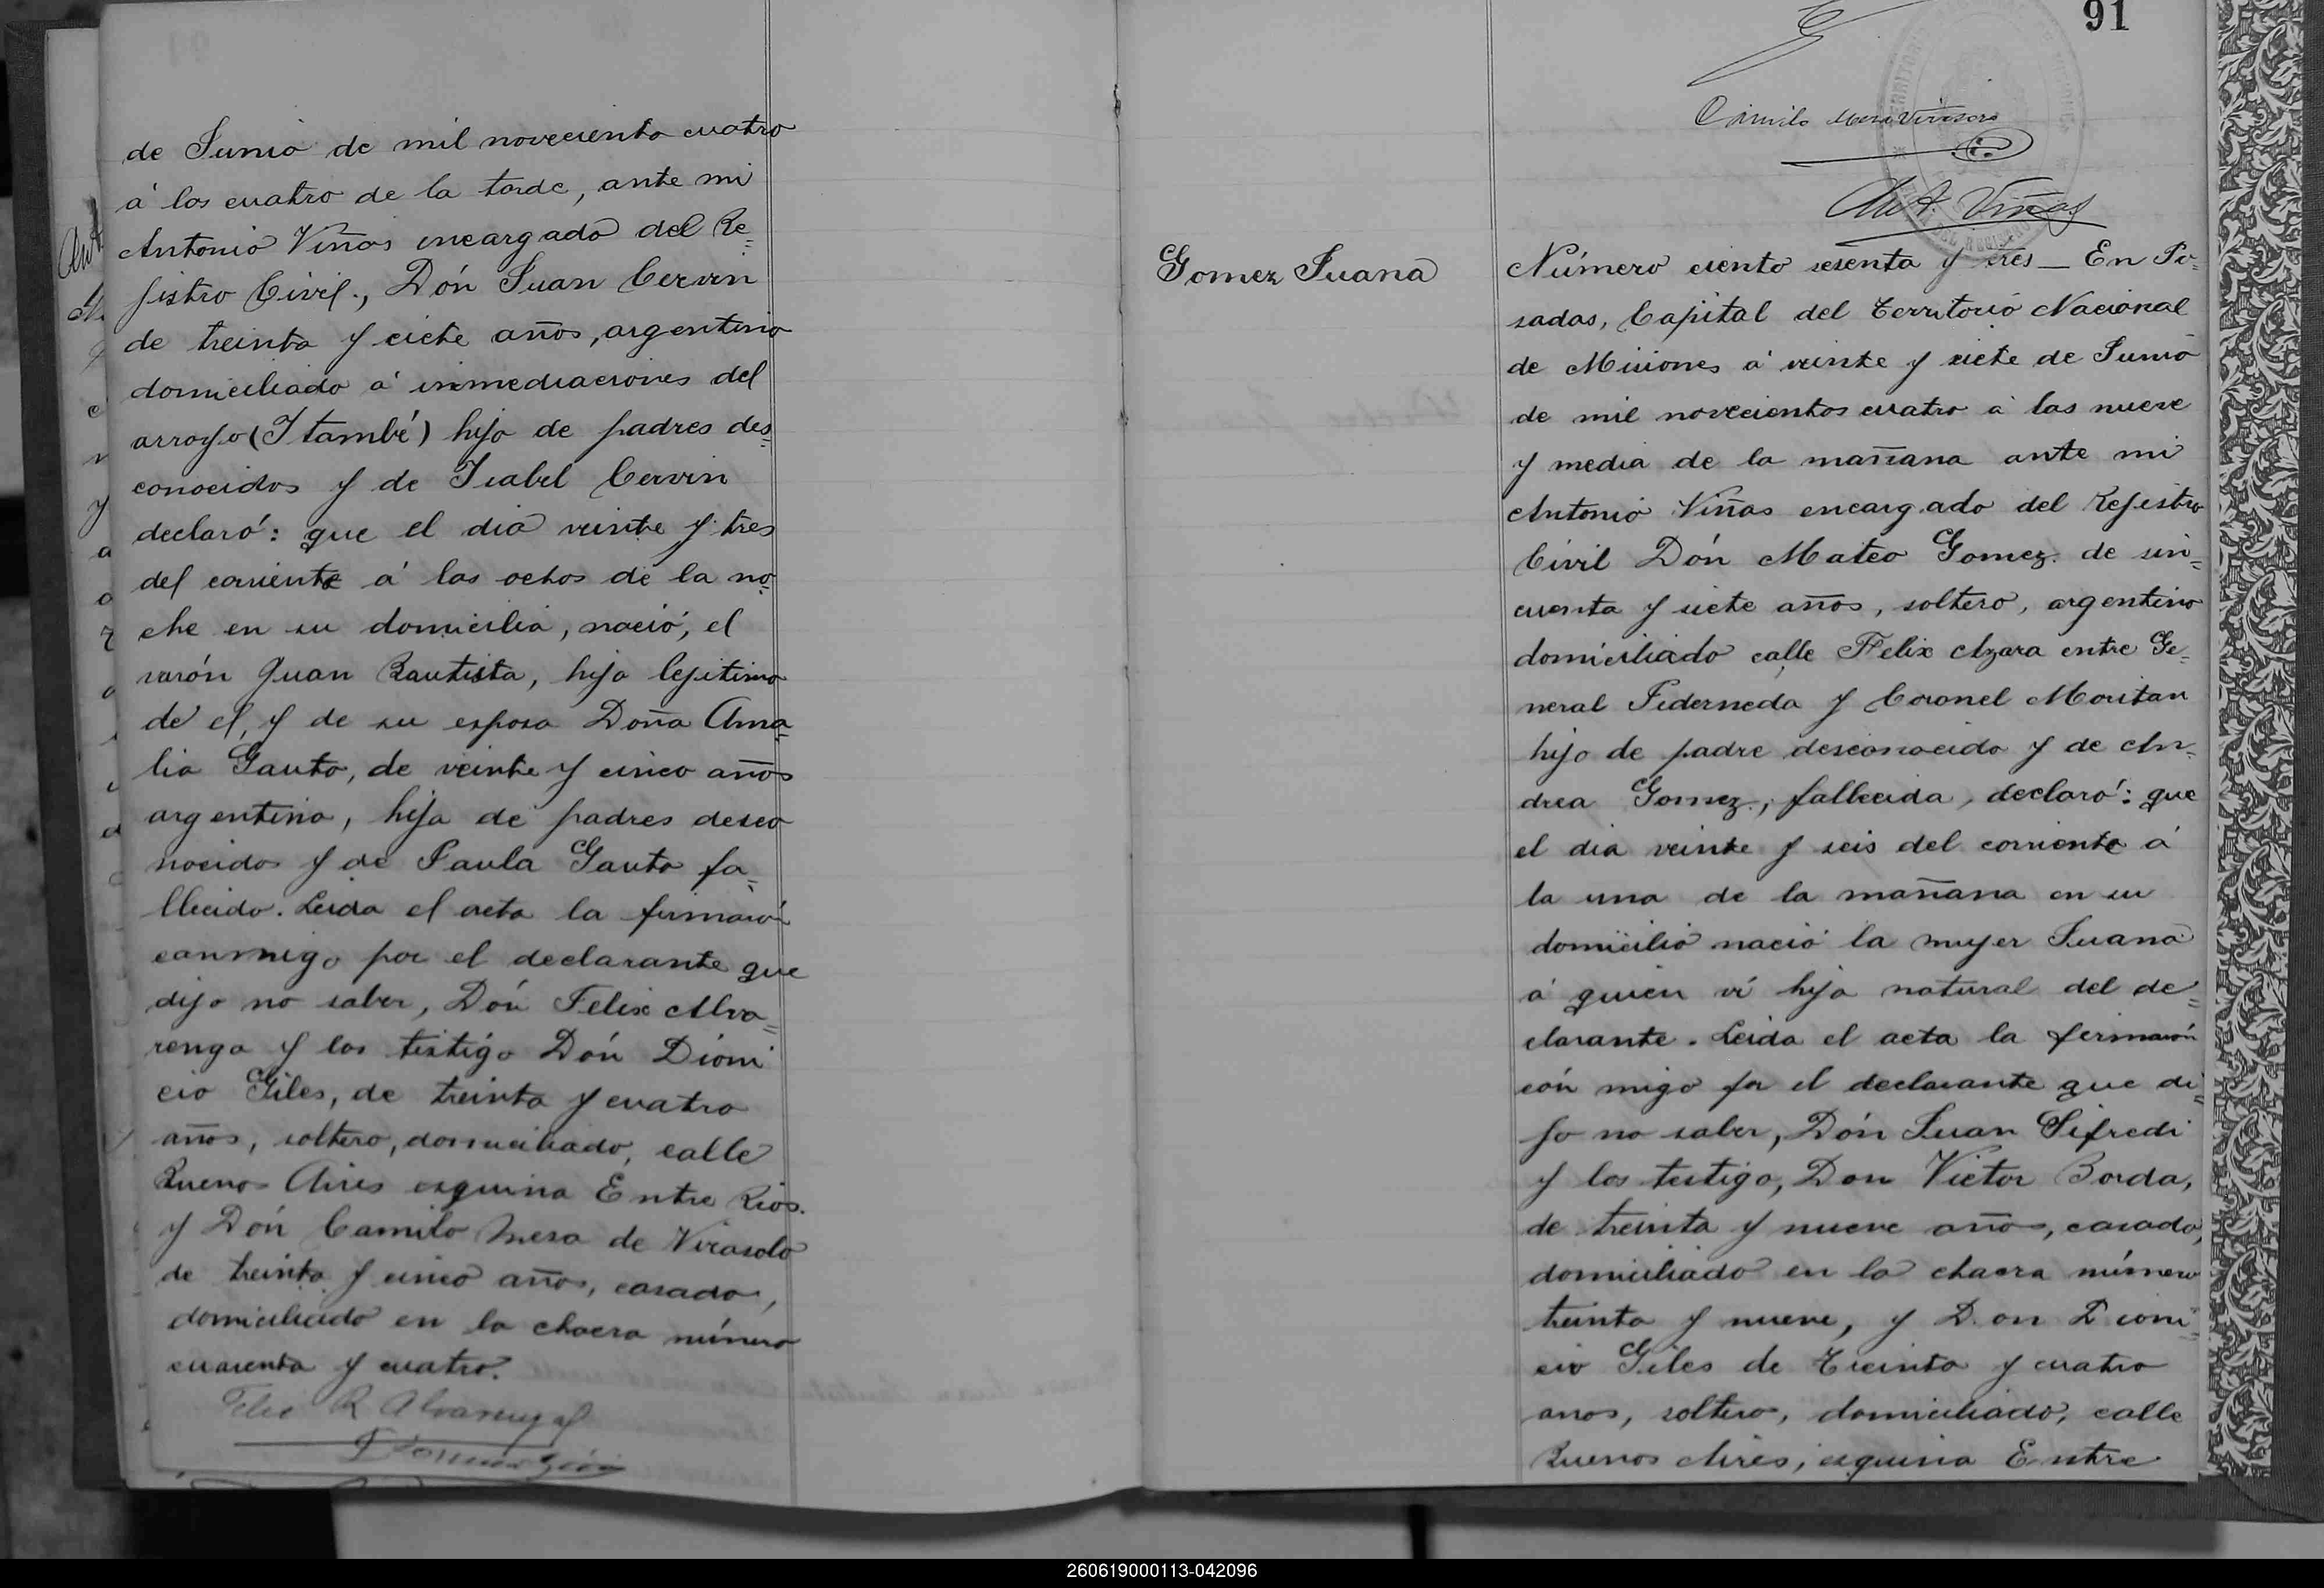 de Junio de mil noveciento cuatro
á los cuatro de la tarde, ante mi
Antonio Viñas encargado del Re=
jistro Civil., Dón Juan Cervin
de treinta y ciete años, argentino
domiciliado á inmediaciones del
arroyo (Itambé) hijo de padres des=
conocidos y de Isabel Cervin
declaró: que el dia veinte y tres
del corriente á las ochos de la no=
che en su domicilia, nació, el
varón Juan Bautista, hijo lejitimo
de el, y de su esposa Doña Ama=
lia Gauto, de veinte y cinco años
argentina, hija de padres desco
nocidos y de Paula Gauto fa=
llecida. Leida el acta la firmarón
conmigo por el declarante que
dijo no saber, Dón Felix Alva=
renga y los testigo Dón Dioni
cio Giles, de treinta y cuatro
años, soltero, domiciliado, calle
Buenos Aires esquina Entre Rios.
y Dón Camilo Mesa de Virasolo
de treinta y cinco años, casado,
domiciliado en la chacra número
cuarenta y cuatro.
Felix R Alvarenga
91
Ant. Viñas
Gomez Juana
Número ciento sesenta y tres — En Po=
sadas, Capital del Territorio Nacional
de Misiones á veinte y siete de Junio
de mil novecientos cuatro á las nueve
y media de la mañana ante mi
Antonio Viñas encargado del Rejistro
Civil Dón Mateo Gomez. de sin=
cuenta y siete años, soltero, argentino
domiciliado calle Felix Azara entre Ge=
neral Federneda y Coronel Moritan
hijo de padre desconocido y de An=
drea Gomez, fallecida, declaró: que
el dia veinte y seis del corriente á
la una de la mañana en su
domicilio nació la mujer Juana
á quien ví hija natural del de=
clarante. Leida el acta la firmarón
cón migo por el declarante que di=
jo no saber, Dón Juan Sifredi
y los testigo, Don Victor Borda,
de treinta y nueve años, casado,
domiciliado en la chacra número
treinta y nueve, y Don Dioni=
cio Giles de treinta y cuatro
anos, soltero, domiciliado, calle
Buenos Aires, esquina Entre
260619000113-042096